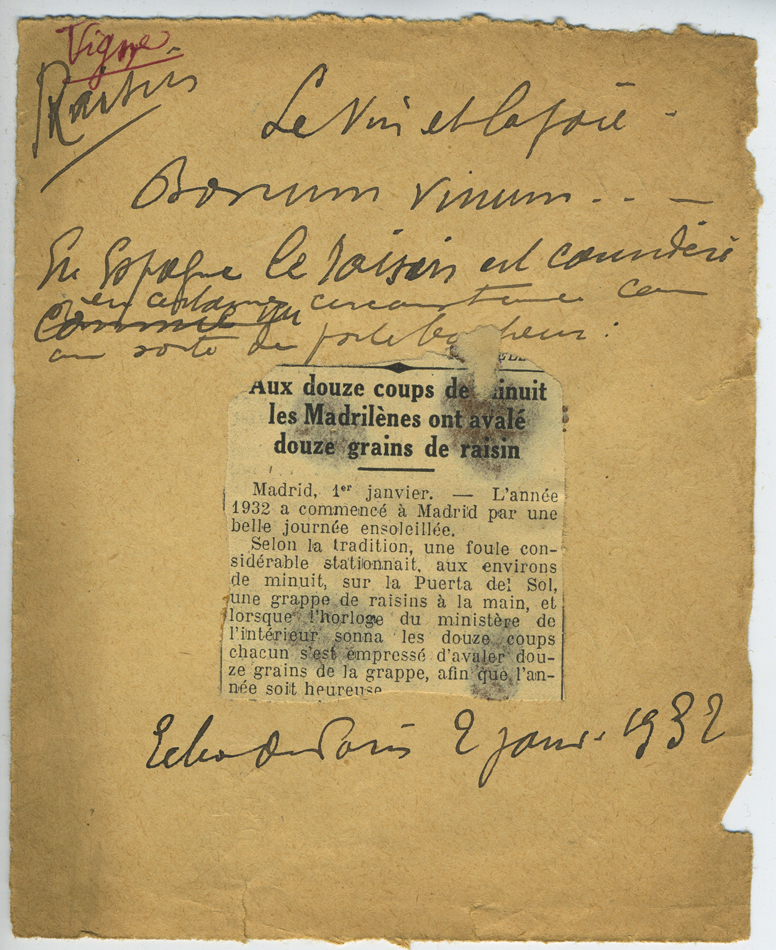 Vigne
Raisin
Le Vin et la joie -
Bonum vinum . . —
En Espagne le raisin est considéré
en certaines circonstances comme
comme un
une sorte de porte bonheur :
Aux douze coups de minuit
les Madrilènes ont avalé
douze grains de raisin
Madrid, 1er janvier. — L'année
1932 a commencé à Madrid par une
belle journée ensoleillée.
Selon la tradition, une foule con-
sidérable stationnait, aux environs
de minuit, sur la Puerta del Sol,
une grappe de raisins à la main, et
lorsque l'horloge du ministère de
l'intérieur sonna les douze coups
chacun s'est empressé d'avaler dou-
ze grains de la grappe, afin que l'an-
née soit heureuse
Echo de Paris 2 janv. 1932